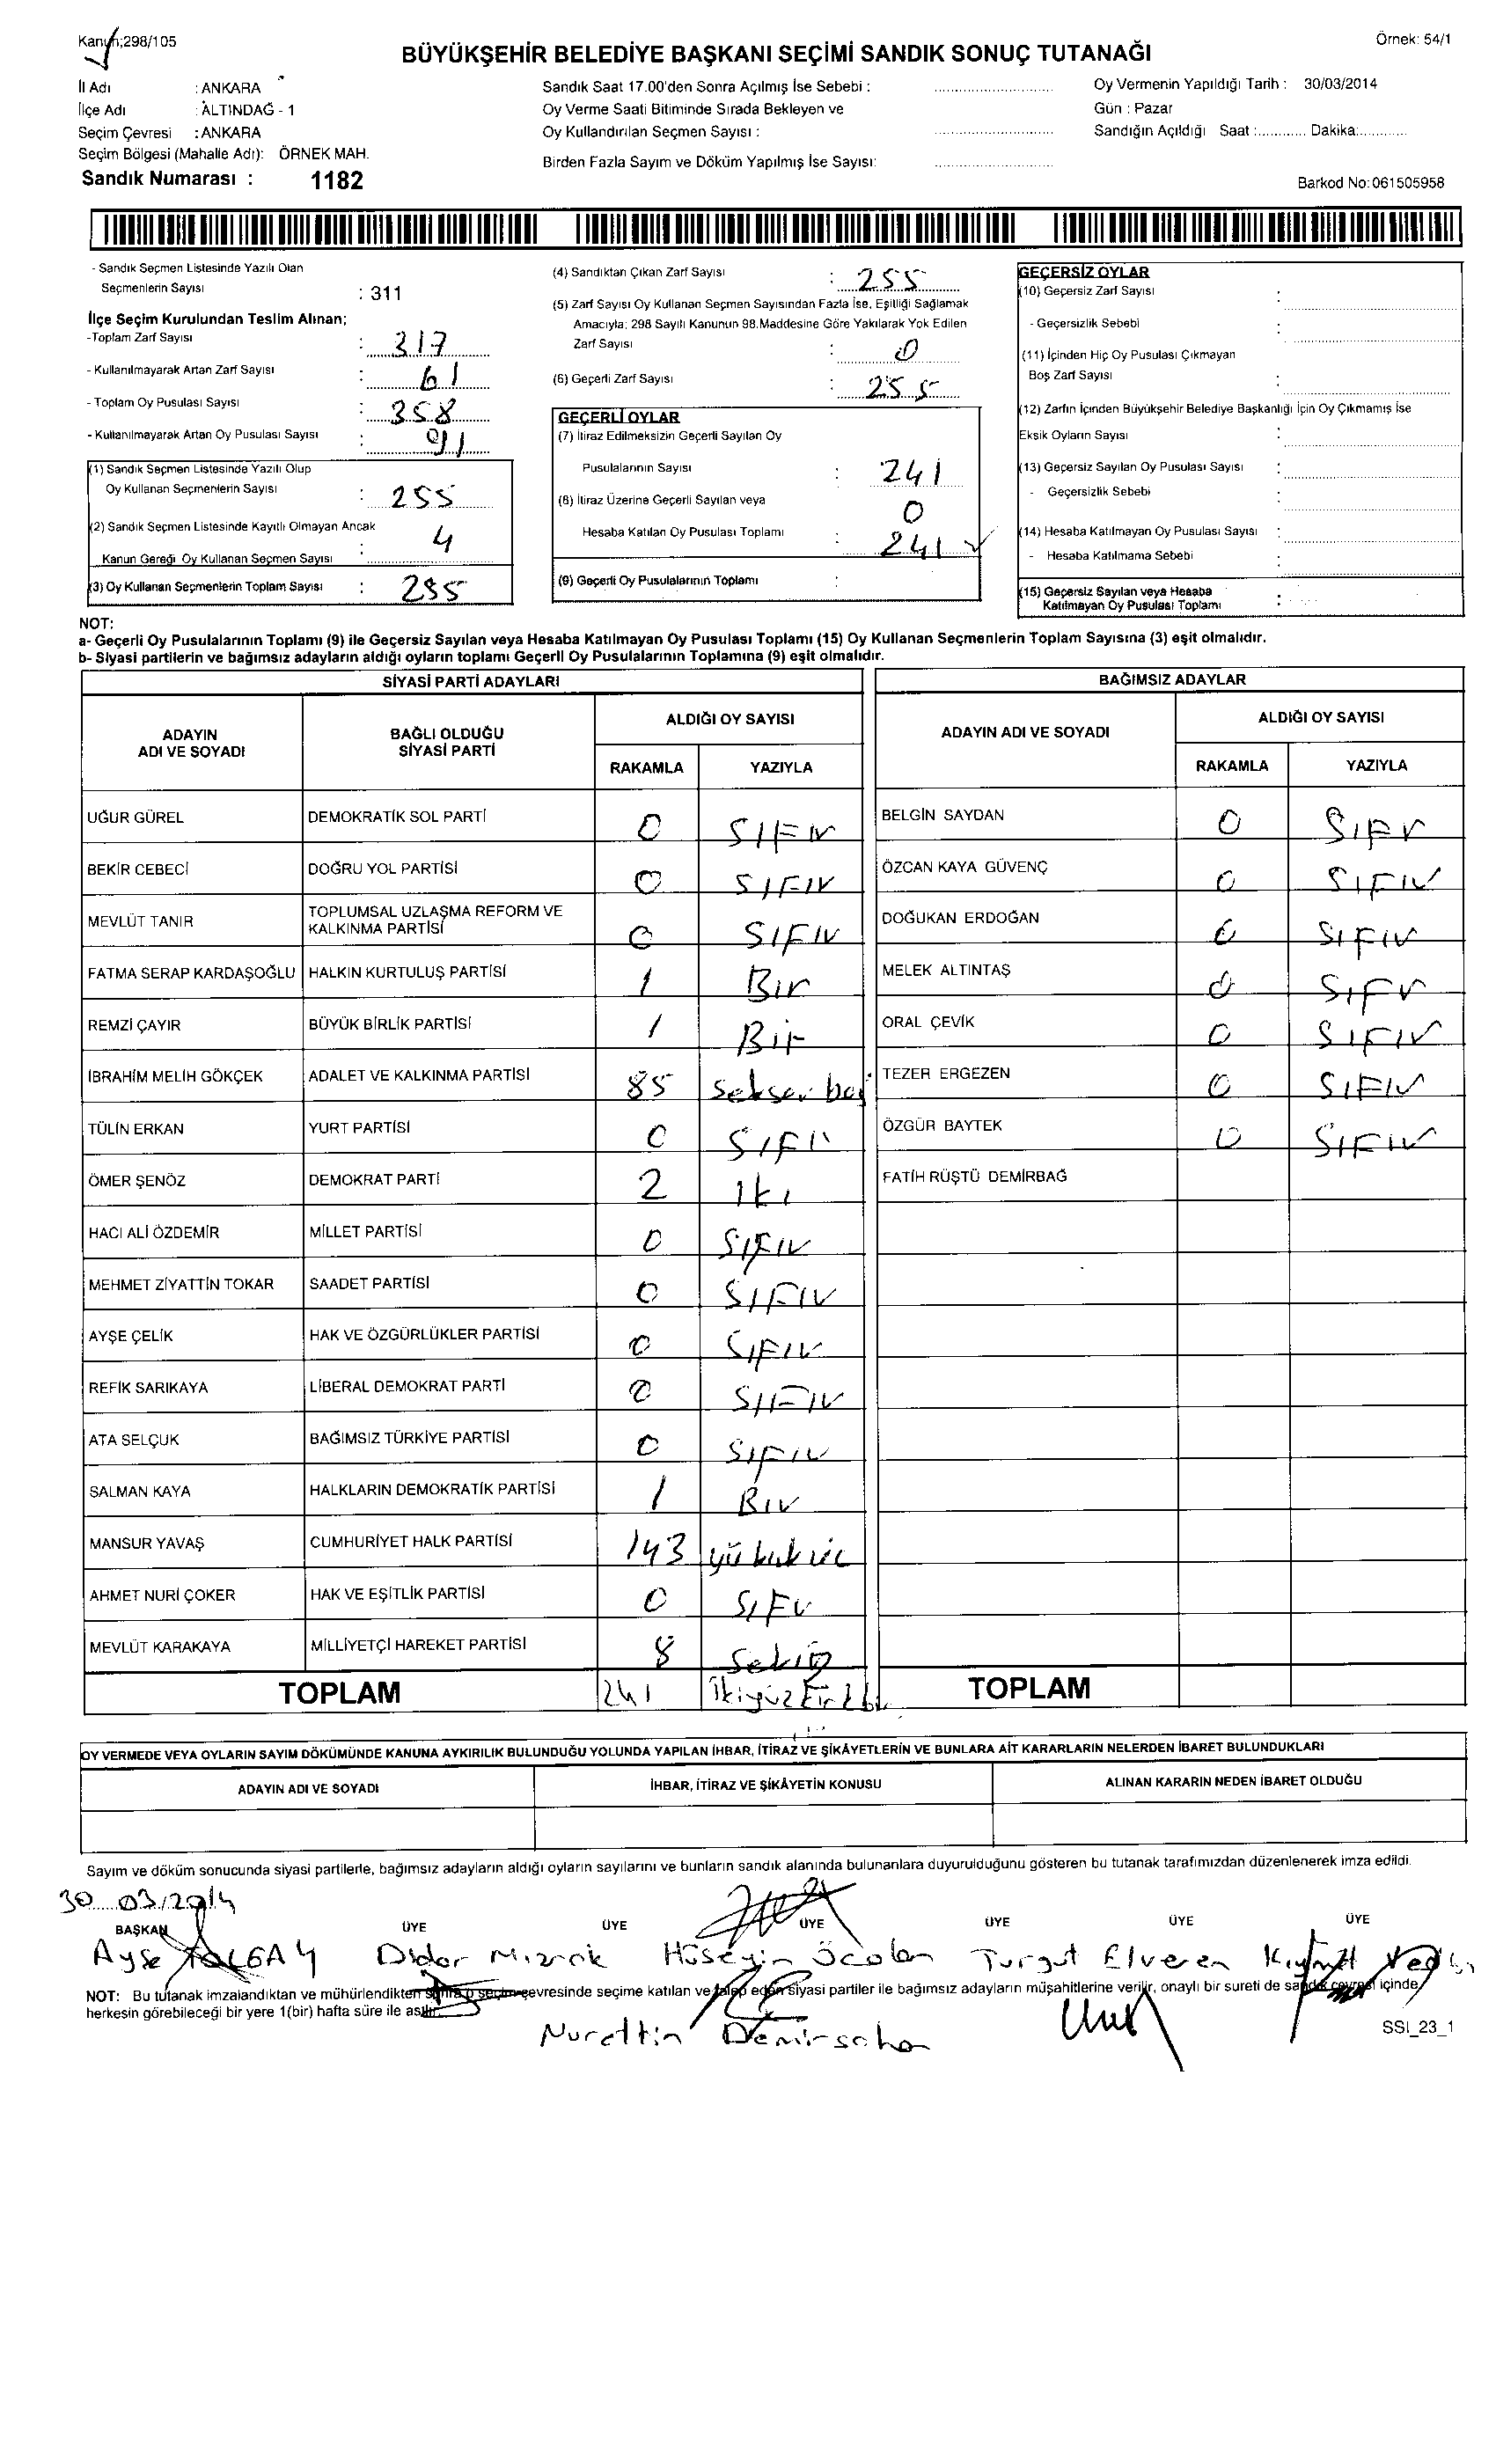 Kanun;298/105
Örnek: 54/1
BÜYÜKŞEHİR BELEDİYE BAŞKANI SEÇİMİ SANDIK SONUÇ TUTANAĞI
İl Adı : ANKARA
İlçe Adı : ALTINDAĞ - 1
Seçim Çevresi : ANKARA
Seçim Bölgesi (Mahalle Adı): ÖRNEK MAH.
Sandık Numarası : 1182
Sandık Saat 17.00'den Sonra Açılmış İse Sebebi :
Oy Verme Saati Bitiminde Sırada Bekleyen ve
Oy Kullandırılan Seçmen Sayısı :
Birden Fazla Sayım ve Döküm Yapılmış İse Sayısı:
Oy Vermenin Yapıldığı Tarih : 30/03/2014
Gün : Pazar
Sandığın Açıldığı Saat :............ Dakika:............
Barkod No:061505958
- Sandık Seçmen Listesinde Yazılı Olan
Seçmenlerin Sayısı : 311
İlçe Seçim Kurulundan Teslim Alınan;
-Toplam Zarf Sayısı : 317
- Kullanılmayarak Artan Zarf Sayısı : 61
- Toplam Oy Pusulası Sayısı : 358
- Kullanılmayarak Artan Oy Pusulası Sayısı : 91
(1) Sandık Seçmen Listesinde Yazılı Olup
Oy Kullanan Seçmenlerin Sayısı : 255
(2) Sandık Seçmen Listesinde Kayıtlı Olmayan Ancak
Kanun Gereği Oy Kullanan Seçmen Sayısı : 4
(3) Oy Kullanan Seçmenlerin Toplam Sayısı : 255
(4) Sandıktan Çıkan Zarf Sayısı : 255
(5) Zarf Sayısı Oy Kullanan Seçmen Sayısından Fazla İse, Eşitliği Sağlamak
Amacıyla; 298 Sayılı Kanunun 98.Maddesine Göre Yakılarak Yok Edilen
Zarf Sayısı : 0
(6) Geçerli Zarf Sayısı : 255
GEÇERLİ OYLAR
(7) İtiraz Edilmeksizin Geçerli Sayılan Oy
Pusulalarının Sayısı : 241
(8) İtiraz Üzerine Geçerli Sayılan veya 0
Hesaba Katılan Oy Pusulası Toplamı : 241
(9) Geçerli Oy Pusulalarının Toplamı :
GEÇERSİZ OYLAR
(10) Geçersiz Zarf Sayısı :
- Geçersizlik Sebebi :
(11) İçinden Hiç Oy Pusulası Çıkmayan
Boş Zarf Sayısı :
(12) Zarfın İçinden Büyükşehir Belediye Başkanlığı İçin Oy Çıkmamış İse
Eksik Oyların Sayısı :
(13) Geçersiz Sayılan Oy Pusulası Sayısı :
- Geçersizlik Sebebi :
(14) Hesaba Katılmayan Oy Pusulası Sayısı :
- Hesaba Katılmama Sebebi :
(15) Geçersiz Sayılan veya Hesaba
Katılmayan Oy Pusulası Toplamı :
NOT:
a- Geçerli Oy Pusulalarının Toplamı (9) ile Geçersiz Sayılan veya Hesaba Katılmayan Oy Pusulası Toplamı (15) Oy Kullanan Seçmenlerin Toplam Sayısına (3) eşit olmalıdır.
b- Siyasi partilerin ve bağımsız adayların aldığı oyların toplamı Geçerli Oy Pusulalarının Toplamına (9) eşit olmalıdır.
SİYASİ PARTİ ADAYLARI
ADAYIN ADI VE SOYADI BAĞLI OLDUĞU SİYASİ PARTİ ALDIĞI OY SAYISI
RAKAMLA YAZIYLA
UĞUR GÜREL DEMOKRATİK SOL PARTİ 0 SIFIR
BEKİR CEBECİ DOĞRU YOL PARTİSİ 0 SIFIR
MEVLÜT TANIR TOPLUMSAL UZLAŞMA REFORM VE KALKINMA PARTİSİ 0 SIFIR
FATMA SERAP KARDAŞOĞLU HALKIN KURTULUŞ PARTİSİ 1 Bir
REMZİ ÇAYIR BÜYÜK BİRLİK PARTİSİ 1 Bir
İBRAHİM MELİH GÖKÇEK ADALET VE KALKINMA PARTİSİ 85 Seksen beş
TÜLİN ERKAN YURT PARTİSİ 0 SIFI
ÖMER ŞENÖZ DEMOKRAT PARTİ 2 Iki
HACI ALİ ÖZDEMİR MİLLET PARTİSİ 0 SIFIR
MEHMET ZİYATTİN TOKAR SAADET PARTİSİ 0 SIFIR
AYŞE ÇELİK HAK VE ÖZGÜRLÜKLER PARTİSİ 0 SIFIR
REFİK SARIKAYA LİBERAL DEMOKRAT PARTİ 0 SIFIR
ATA SELÇUK BAĞIMSIZ TÜRKİYE PARTİSİ 0 SIFIR
SALMAN KAYA HALKLARIN DEMOKRATİK PARTİSİ 1 Bir
MANSUR YAVAŞ CUMHURİYET HALK PARTİSİ 143
AHMET NURİ ÇOKER HAK VE EŞİTLİK PARTİSİ 0 SIFIR
MEVLÜT KARAKAYA MİLLİYETÇİ HAREKET PARTİSİ 8 Sekiz
TOPLAM 241
BAĞIMSIZ ADAYLAR
ADAYIN ADI VE SOYADI ALDIĞI OY SAYISI
RAKAMLA YAZIYLA
BELGİN SAYDAN 0 SIFIR
ÖZCAN KAYA GÜVENÇ 0 SIFIR
DOĞUKAN ERDOĞAN 0 SIFIR
MELEK ALTINTAŞ 0 SIFIR
ORAL ÇEVİK 0 SIFIR
TEZER ERGEZEN 0 SIFIR
ÖZGÜR BAYTEK 0 SIFIR
FATİH RÜŞTÜ DEMİRBAĞ
TOPLAM
OY VERMEDE VEYA OYLARIN SAYIM DÖKÜMÜNDE KANUNA AYKIRILIK BULUNDUĞU YOLUNDA YAPILAN İHBAR, İTİRAZ VE ŞİKÂYETLERİN VE BUNLARA AİT KARARLARIN NELERDEN İBARET BULUNDUKLARI
ADAYIN ADI VE SOYADI İHBAR, İTİRAZ VE ŞİKÂYETİN KONUSU ALINAN KARARIN NEDEN İBARET OLDUĞU
Sayım ve döküm sonucunda siyasi partilerle, bağımsız adayların aldığı oyların sayılarını ve bunların sandık alanında bulunanlara duyurulduğunu gösteren bu tutanak tarafımızdan düzenlenerek imza edildi.
30.03/2014
BAŞKAN ÜYE ÜYE ÜYE ÜYE ÜYE ÜYE
Ayşe TOLGAY Didar Mızrak Hüseyin Öcalan Turgut Elveren Kıymet
NOT: Bu tutanak imzalandıktan ve mühürlendikten sonra o seçim çevresinde seçime katılan ve talep eden siyasi partiler ile bağımsız adayların müşahitlerine verilir, onaylı bir sureti de sandık çevresi içinde,
herkesin görebileceği bir yere 1(bir) hafta süre ile asılır.
Nurettin Demirsahan
SSI_23_1